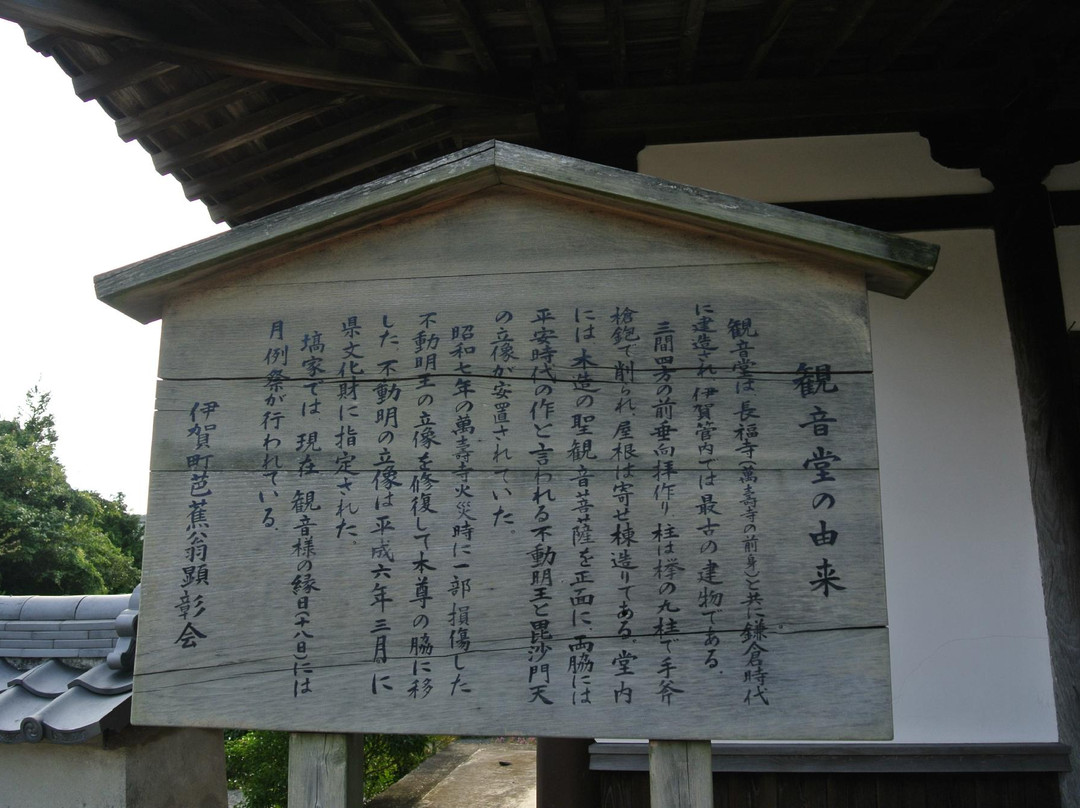 観音堂の由来
観音堂は長福寺(萬壽寺の前身)と共に鎌倉時代
に建造され、伊賀管内では最古の建物である。
三間四方の前垂向拝作り 柱は欅の丸柱で手斧
槍鉋で削られ、屋根は寄せ棟造りてある。堂内
には 木造の聖観音菩薩を正面に、両脇には
平安時代の作と言われる不動明王と毘沙門天
の立像が安置されていた。
昭和七年の萬壽寺火災時に一部損傷した
不動明王の立像を修復して本尊の脇に移
した 不動明の立像は平成六年三月に
県文化財に指定された。
塙家では 現在 観音様の縁日(十八日)には
月例祭が行われている。
伊賀町芭蕉翁顕彰会